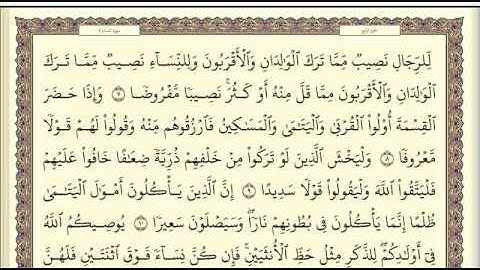 سورة النساء ٤
الجزء الرابع
لِّلرِّجَالِ نَصِيبٌ مِّمَّا تَرَكَ ٱلْوَٰلِدَانِ وَٱلْأَقْرَبُونَ وَلِلنِّسَآءِ نَصِيبٌ مِّمَّا تَرَكَ
ٱلْوَٰلِدَانِ وَٱلْأَقْرَبُونَ مِمَّا قَلَّ مِنْهُ أَوْ كَثُرَ ۚ نَصِيبًا مَّفْرُوضًا ٧ وَإِذَا حَضَرَ
ٱلْقِسْمَةَ أُو۟لُوا۟ ٱلْقُرْبَىٰ وَٱلْيَتَٰمَىٰ وَٱلْمَسَٰكِينُ فَٱرْزُقُوهُم مِّنْهُ وَقُولُوا۟ لَهُمْ قَوْلًا
مَّعْرُوفًا ٨ وَلْيَخْشَ ٱلَّذِينَ لَوْ تَرَكُوا۟ مِنْ خَلْفِهِمْ ذُرِّيَّةً ضِعَٰفًا خَافُوا۟ عَلَيْهِمْ
فَلْيَتَّقُوا۟ ٱللَّهَ وَلْيَقُولُوا۟ قَوْلًا سَدِيدًا ٩ إِنَّ ٱلَّذِينَ يَأْكُلُونَ أَمْوَٰلَ ٱلْيَتَٰمَىٰ
ظُلْمًا إِنَّمَا يَأْكُلُونَ فِى بُطُونِهِمْ نَارًا ۖ وَسَيَصْلَوْنَ سَعِيرًا ١٠ يُوصِيكُمُ ٱللَّهُ
فِىٓ أَوْلَٰدِكُمْ ۖ لِلذَّكَرِ مِثْلُ حَظِّ ٱلْأُنثَيَيْنِ ۚ فَإِن كُنَّ نِسَآءً فَوْقَ ٱثْنَتَيْنِ فَلَهُنَّ